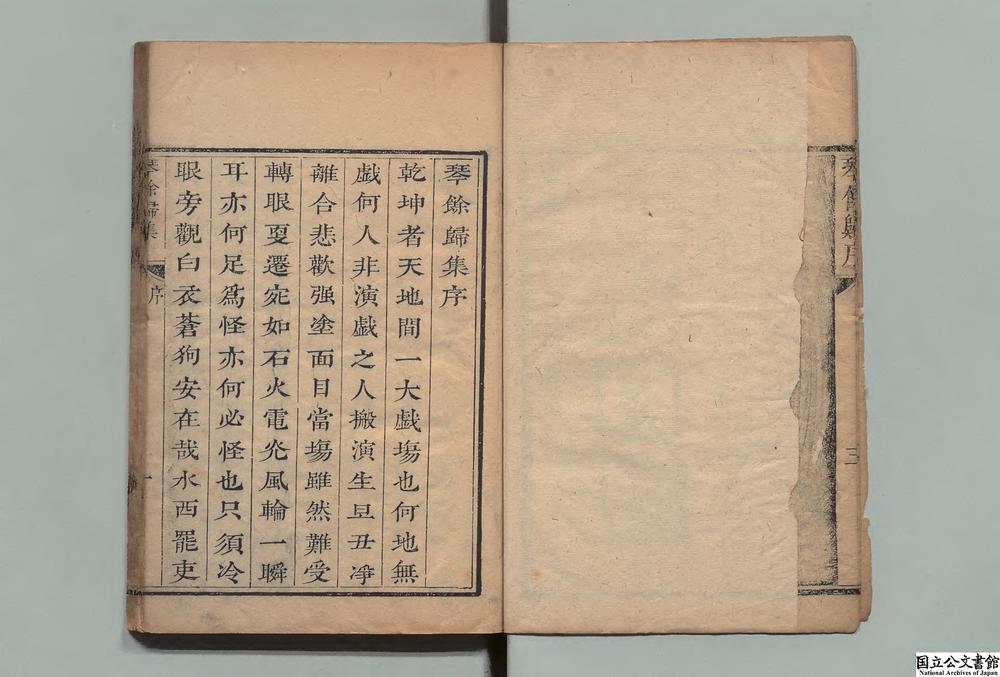 琴餘歸序
三
琴餘歸集序
乾坤者天地間一大戲塲也何地無
戲何人非演戲之人搬演生旦丑凈
離合悲歡强塗面目當塲雖然難受
轉眼変遷宛如石火電光風輪一瞬
耳亦何足爲怪亦何必怪也只須冷
眼旁觀白衣蒼狗安在哉水西罷吏
琴餘歸集
序
一
国立公文書館
National Archives of Japan